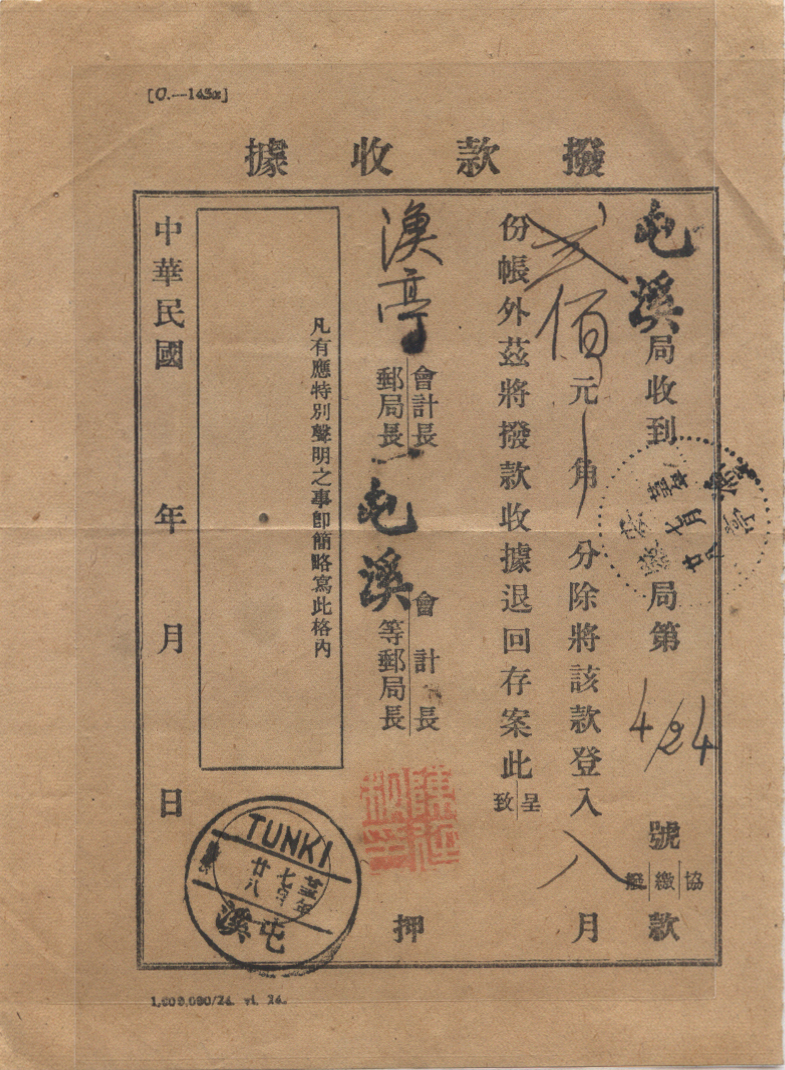 [C.—143a]
撥款收據
屯溪局收到 局第4/24號 協繳撥款
佰元角分除將該款登入八月
份帳外茲將撥款收據退回存案此呈致
漁亭會計長郵局長
屯溪會計長等郵局長 押
凡有應特別聲明之事卽簡略寫此格內
中華民國 年 月 日
漁亭
七月
廿八
TUNKI
年
七月
廿八
屯溪